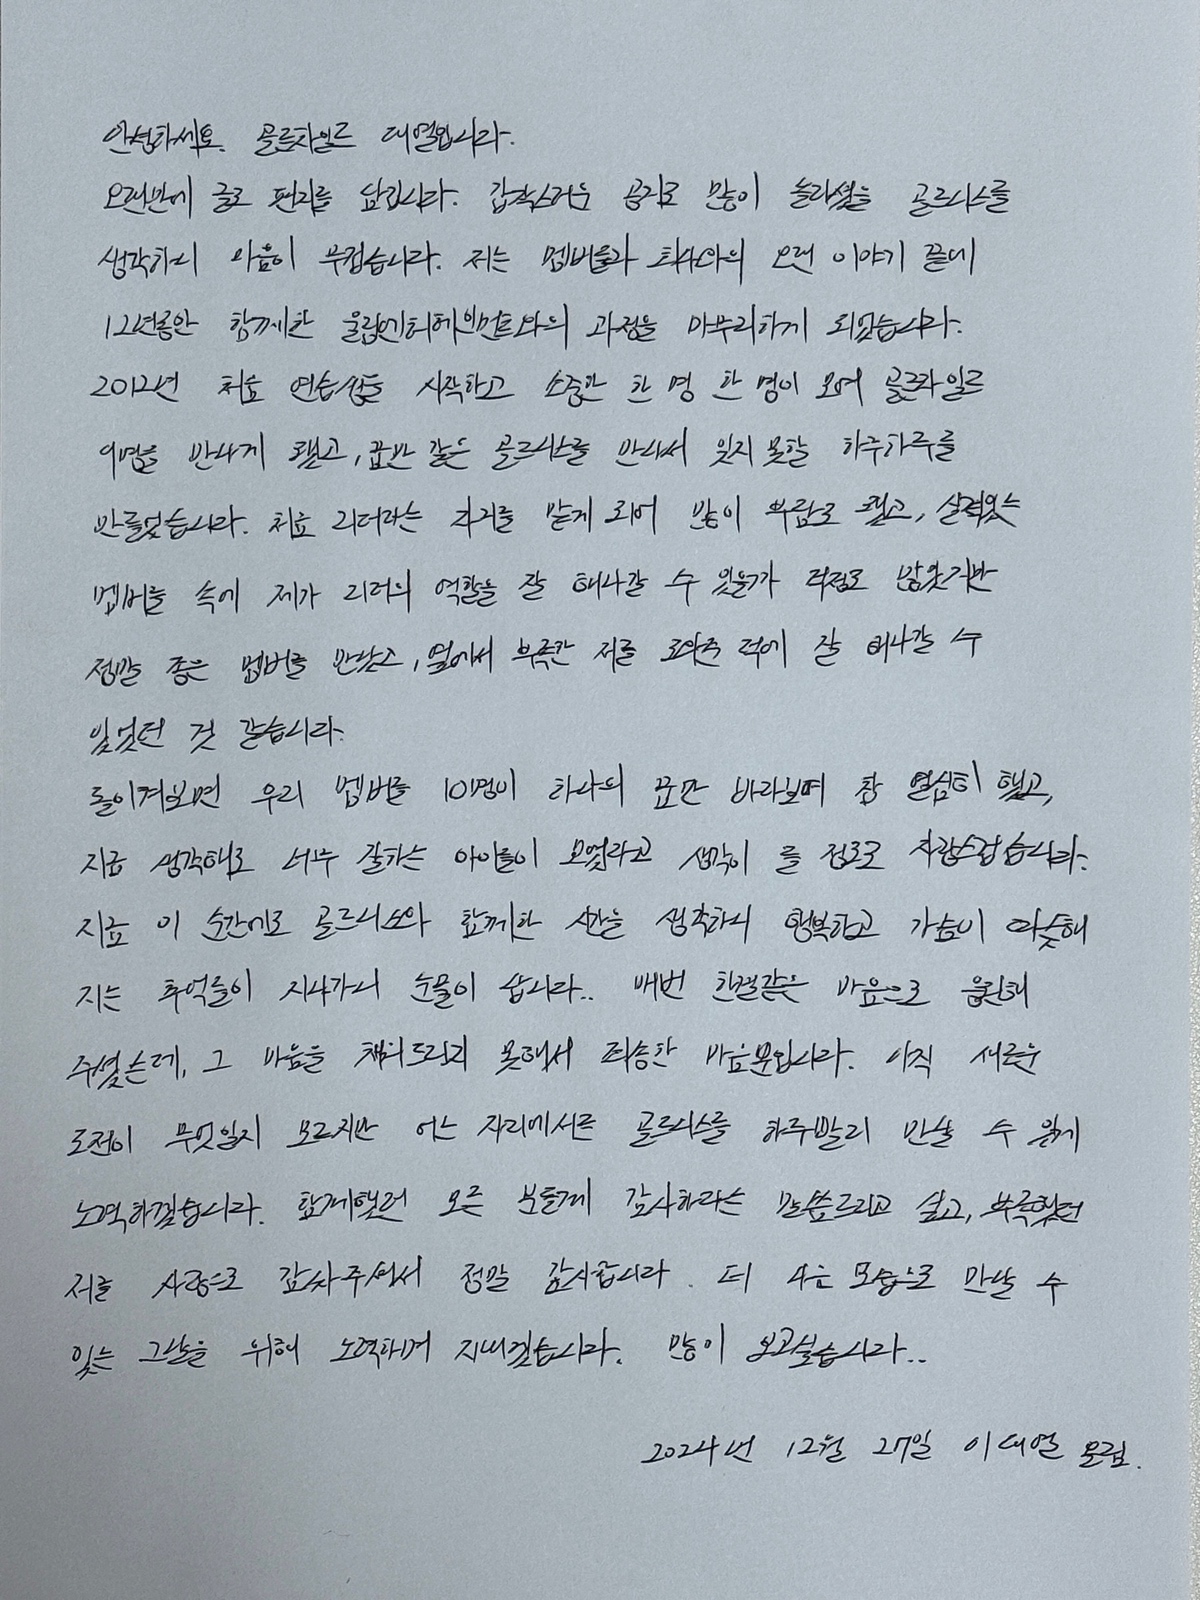 안녕하세요. 골든차일드 대열입니다.
오랜만에 글로 편지를 남깁니다. 갑작스러운 공지로 많이 놀라셨을 골드니스를
생각하니 마음이 무겁습니다. 저는 멤버들과 회사와의 오랜 이야기 끝에
12년동안 함께한 울림엔터테인먼트와의 과정을 마무리하게 되었습니다.
2012년 처음 연습생을 시작하고 소중한 한 명 한 명이 모여 골든차일드
멤버들을 만나게 됐고, 꿈만 같은 골드니스를 만나서 잊지 못할 하루하루를
만들었습니다. 처음 리더라는 자리를 맡게 되어 많이 부담도 됐고, 실력있는
멤버들 속에 제가 리더의 역할을 잘 해나갈 수 있을까 걱정도 많았지만
정말 좋은 멤버들 만났고, 옆에서 부족한 저를 도와준 덕에 잘 해나갈 수
있었던 것 같습니다.
돌이켜보면 우리 멤버들 10명이 하나의 꿈만 바라보며 참 열심히 했고,
지금 생각해도 너무 잘하는 아이들이 모였다고 생각이 들 정도로 자랑스럽습니다.
지금 이 순간에도 골드니스와 함께한 시간을 생각하니 행복하고 가슴이 따뜻해
지는 추억들이 지나가니 눈물이 납니다.. 매번 한결같은 마음으로 응원해
주셨는데, 그 마음을 채워드리지 못해서 죄송한 마음뿐입니다. 아직 새로운
도전이 무엇일지 모르지만 어느 자리에서든 골드니스를 하루빨리 만날 수 있게
노력하겠습니다. 함께했던 모든 분들께 감사하다는 말씀드리고 싶고, 부족했던
저를 사랑으로 감싸주셔서 정말 감사합니다. 더 나은 모습으로 만날 수
있는 그날을 위해 노력하며 지내겠습니다. 많이 보고싶습니다..
2024년 12월 27일 이대열 올림.